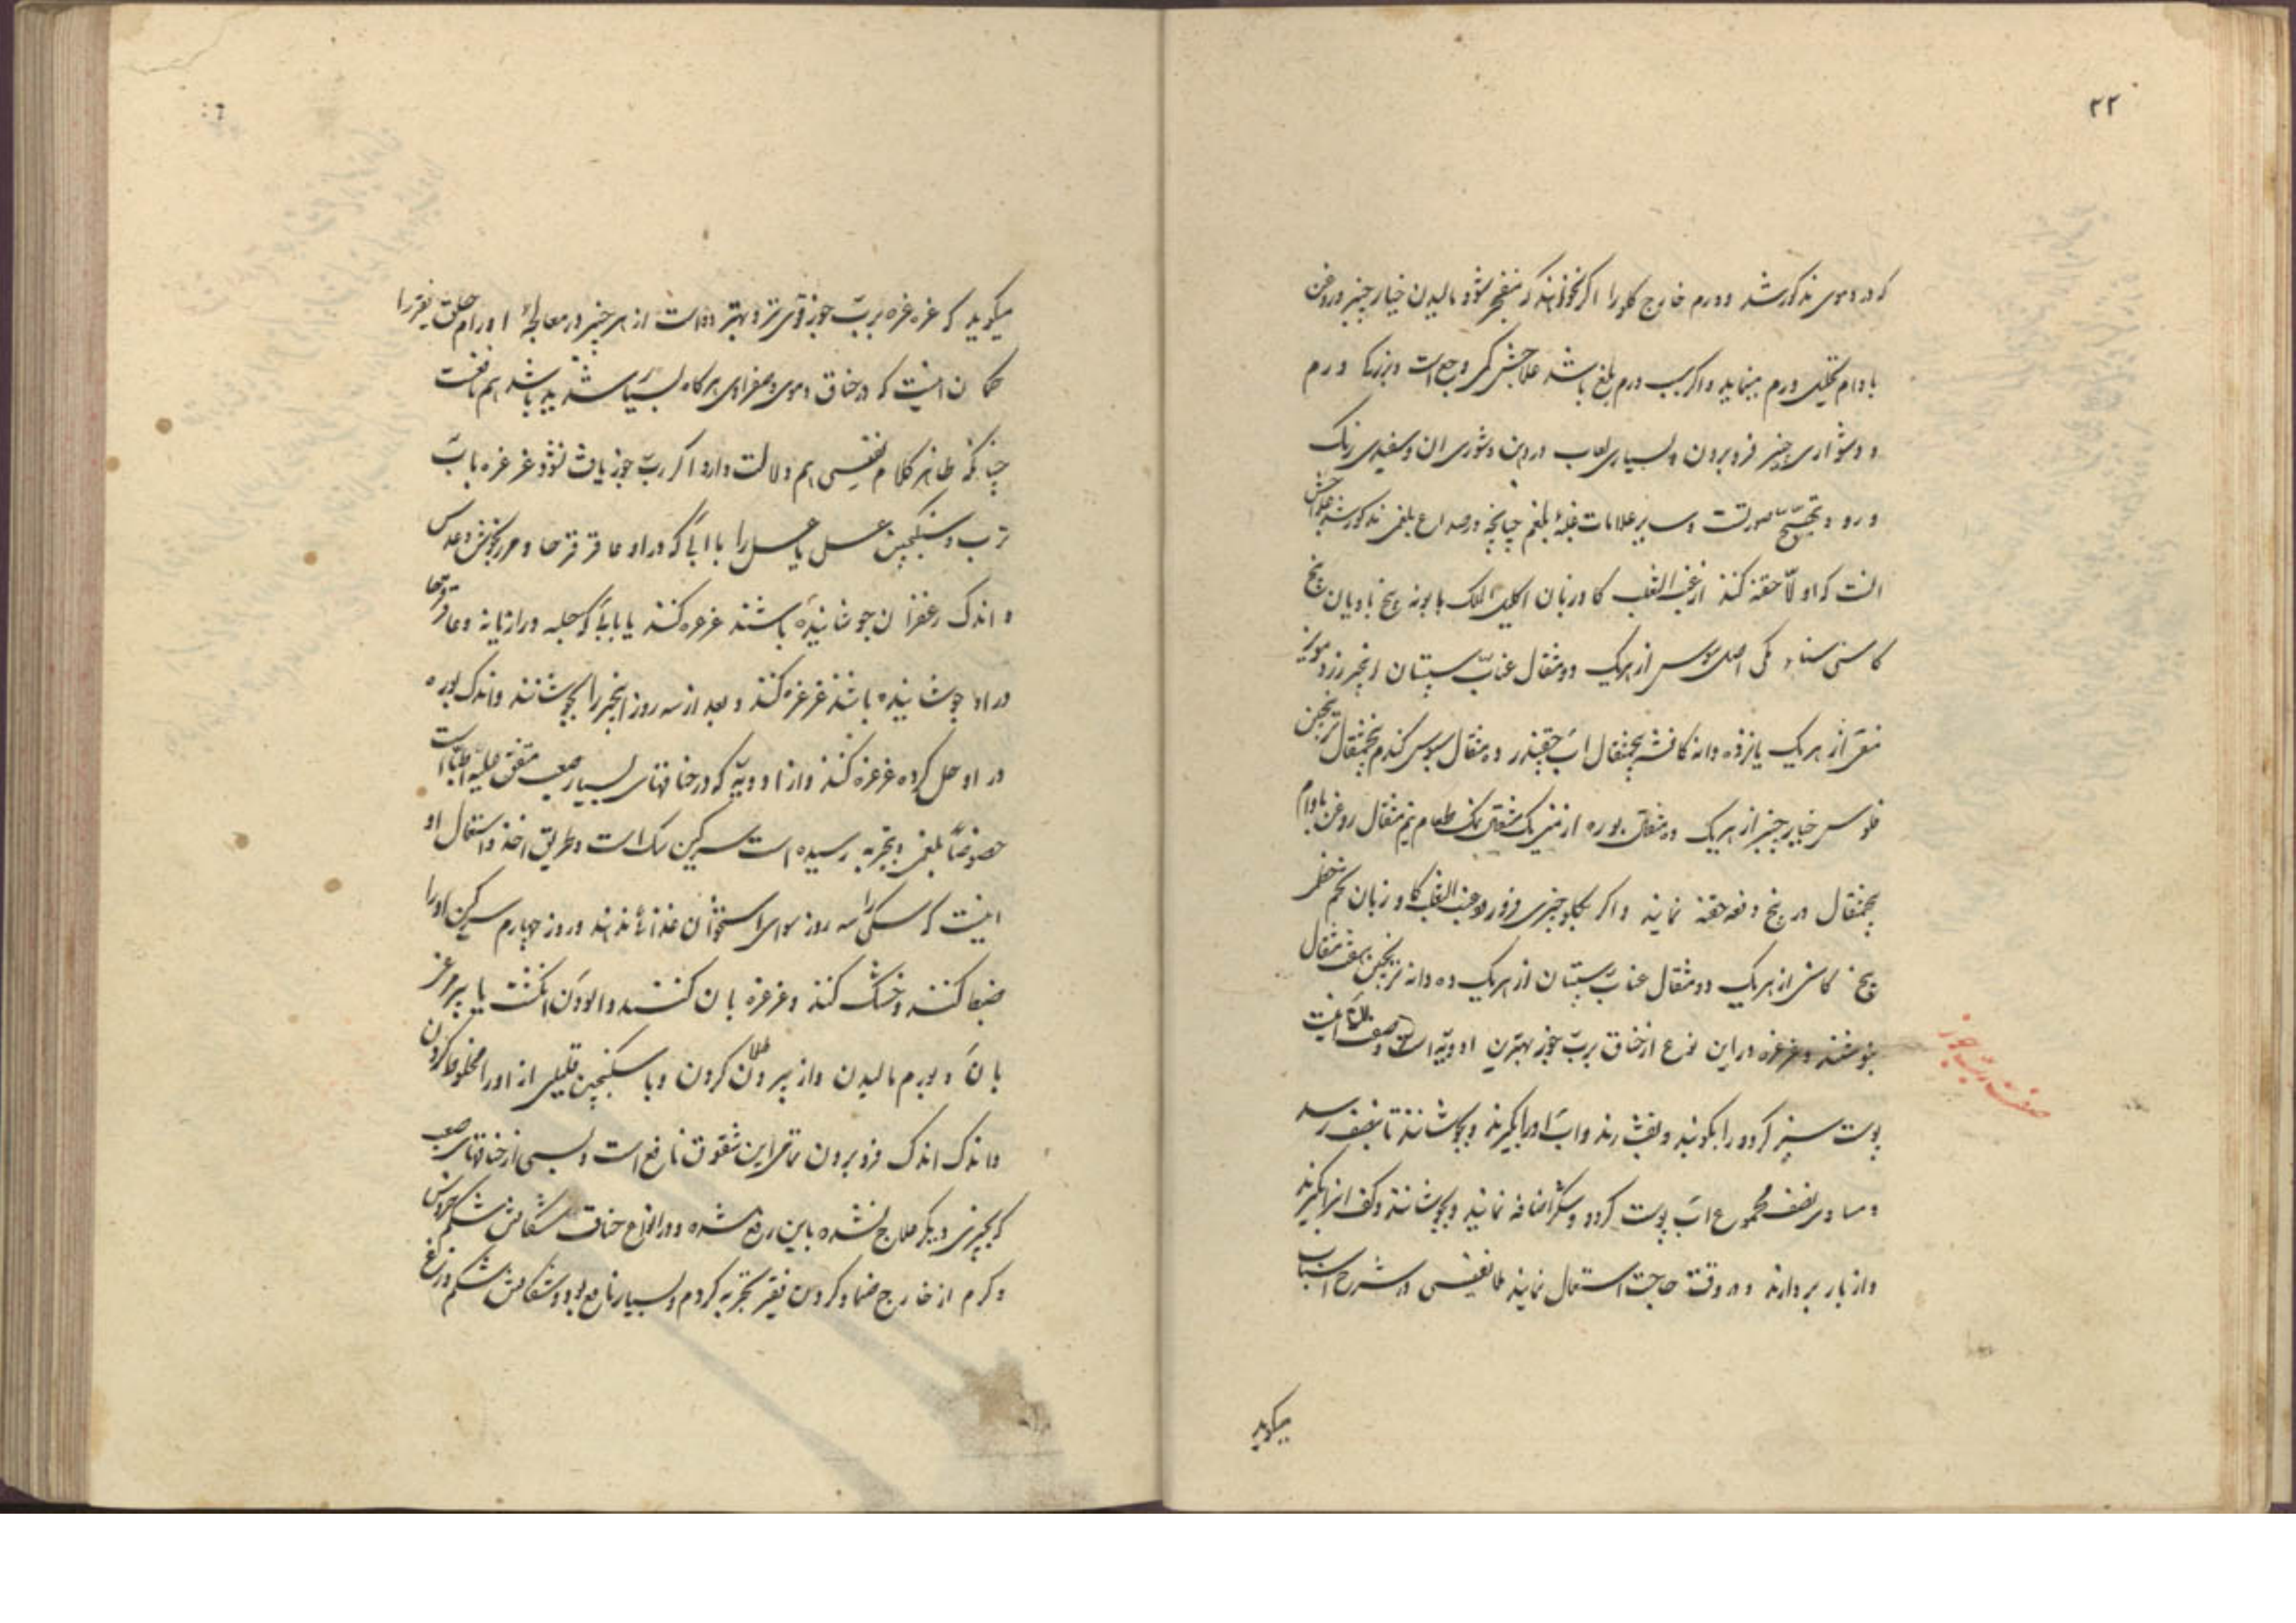 ۲۲
که در دموی مذکور شد و ورم خارج کلو را اکر نخواهند که منفجر شود مالیدن خیار چنبر و روغن
بادام تحلیل ورم مینماید و اکر سبب ورم بلغم باشد علامتش کمی وجع است و بزرکی ورم
و دشواری چیز فرو بردن و بسیاری لعاب در دهن و شوری ان و سفیدی رنک
و رو و تهیج صورتست و سایر علامات غلبهٔ بلغم چنانچه در صداع بلغمی مذکور شد علاجش
انست که اولا حقنه کنند از عنب الثعلب کاوزبان اکلیل الملک بابونه بیخ بادیان بیخ
کاسنی سناء مکی اصل سوس از هریک دو مثقال عناب سپستان انجیر زرد مویز
منقی از هریک پانزده دانه کافشه پنجمثقال اب چقندر ده مثقال سبوس کندم پنجمثقال ترنجبین
فلوس خیار چنبر از هریک ده مثقال بوره ارمنی یک مثقال نمک طعام نیم مثقال روغن بادام
پنجمثقال در پنج دفعه حقنه نمایند و اکر بکلو چیزی فرو رود عنب الثعلب کاوزبان تخم خطمی
بیخ کاسنی از هریک دو مثقال عناب سپستان از هریک ده دانه ترنجبین هفت مثقال
بنوشند و غرغره در این نوع از خناق برب جوز بهترین ادویه است و صفت ان اینست
صفت رب جوز
پوست سبز کردو را بکوبند و بفشارند و اب او را بکیرند و بجوشانند تا بنصف رسد
و مساوی نصف مجموع اب پوست کردو شکر اضافه نمایند و بجوشانند و کف انرا بکیرند
و از بار بردارند و در وقت حاجت استعمال نمایند ملا نفیسی در شرح اسباب
میکوید
میکوید که غرغره برب جوز قوی تر و بهتر دواست از هر چیز در معالجهٔ اورام حلق فقیر را
کمان اینست که در خناق دموی و صفراوی هرکاه بسیار شدید باشد هم نافعست
چنانکه ظاهر کلام نفیسی هم دلالت دارد اکر رب جوز یافت نشود غرغره باب
ترب و سکنجبین عسلی یا عسل را با ابی که در او عاقر قرحا و مرزنجوش و عدس
و اندک زعفران جوشانیده باشند غرغره کنند یا بابی که حلبه و رازیانه و عاقر قرحا
در او جوشانیده باشند غرغره کنند و بعد از سه روز انجیر را بجوشانند و اندک بوره
در او حل کرده غرغره کنند و از ادویه که در خناقهای بسیار صعب متفق علیه اطبا است
خصوصاً بلغمی و بتجربه رسیده است سرکین سک است و طریق اخذ و استعمال او
اینست که سکی را سه روز سوای استخوان غذائی ندهند و روز چهارم سرکین او را
ضبط کنند و خشک کنند و غرغره بان کنند و الودن انکشت یا پر مرغ
بان و بورم مالیدن و از بیرون طلا کردن و با سکنجبین قلیلی از او را مخلوط کردن
و اندک اندک فرو بردن تمامی این شقوق نافع است و بسی از خناقهای صعب
که بچیزی دیکر علاج نشده باین رفع شده و در انواع خناق شکافتن شکم خروس
و کرم از خارج ضماد کردن فقیر تجربه کردم و بسیار نافع بود و شکافتن شکم وزغ